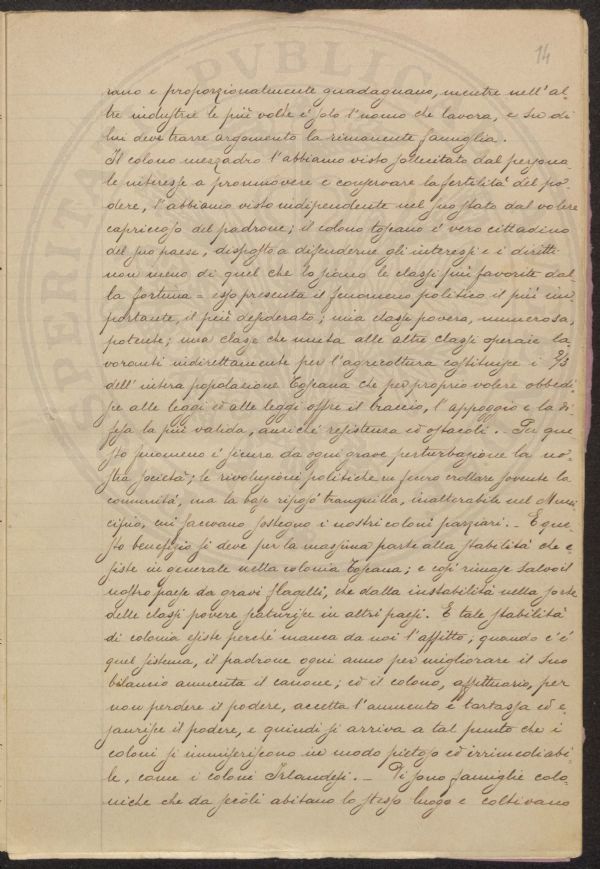 14
rano e proporzionalmente guadagnano, mentre nell'al-
tre industrie le più volte è solo l'uomo che lavora, e su di
lui deve trarre argomento la rimanente famiglia.
Il colono mezzadro l'abbiamo visto sollecitato dal persona
le interesse a promuovere e conservare la fertilità del po-
dere, l'abbiamo visto indipendente nel suo stato dal volere
capriccioso del padrone; il colono toscano è vero cittadino
del suo paese, disposto a difenderne gli interessi e i diritti
non meno di quel che lo siano le classi più favorite dal-
la fortuna = esso presenta il fenomeno politico il più im
portante, il più desiderato; una classe povera, numerosa,
potente; una classe che unita alle altre classi operaie la-
voranti indirettamente per l'agricoltura costituisce i 2/3
dell'intera popolazione Toscana che per proprio volere obbedi-
sce alle leggi ed alle leggi offre il braccio, l'appoggio e la di-
fesa la più valida, anziché resistenza ed ostacoli. - Per que
sto fenomeno è sicura da ogni grave perturbazione la no-
stra società; le rivoluzioni politiche ne fecero crollare sovente la
comunità, ma la base riposò tranquilla, inalterabile nel Muni-
cipio, cui facevano sostegno i nostri coloni parziari. - E que-
sto benefizio si deve per la massima parte alla stabilità che e-
siste in generale nella colonia Toscana; e così rimase salvo il
nostro paese da gravi flagelli, che dalla instabilità nella sorte
delle classi povere scaturisce in altri paesi. E tale stabilità
di colonia esiste perché manca da noi l'affitto; quando c'è
quel sistema, il padrone ogni anno per migliorare il suo
bilancio aumenta il canone; ed il colono, affittuario, per
non perdere il podere, accetta l'aumento e tartassa ed e-
saurisce il podere, e quindi si arriva a tal punto che i
coloni si immiseriscono in modo pietoso ed irrimediabi-
le, come i coloni Irlandesi. - Vi sono famiglie colo-
niche che da secoli abitano lo stesso luogo e coltivano